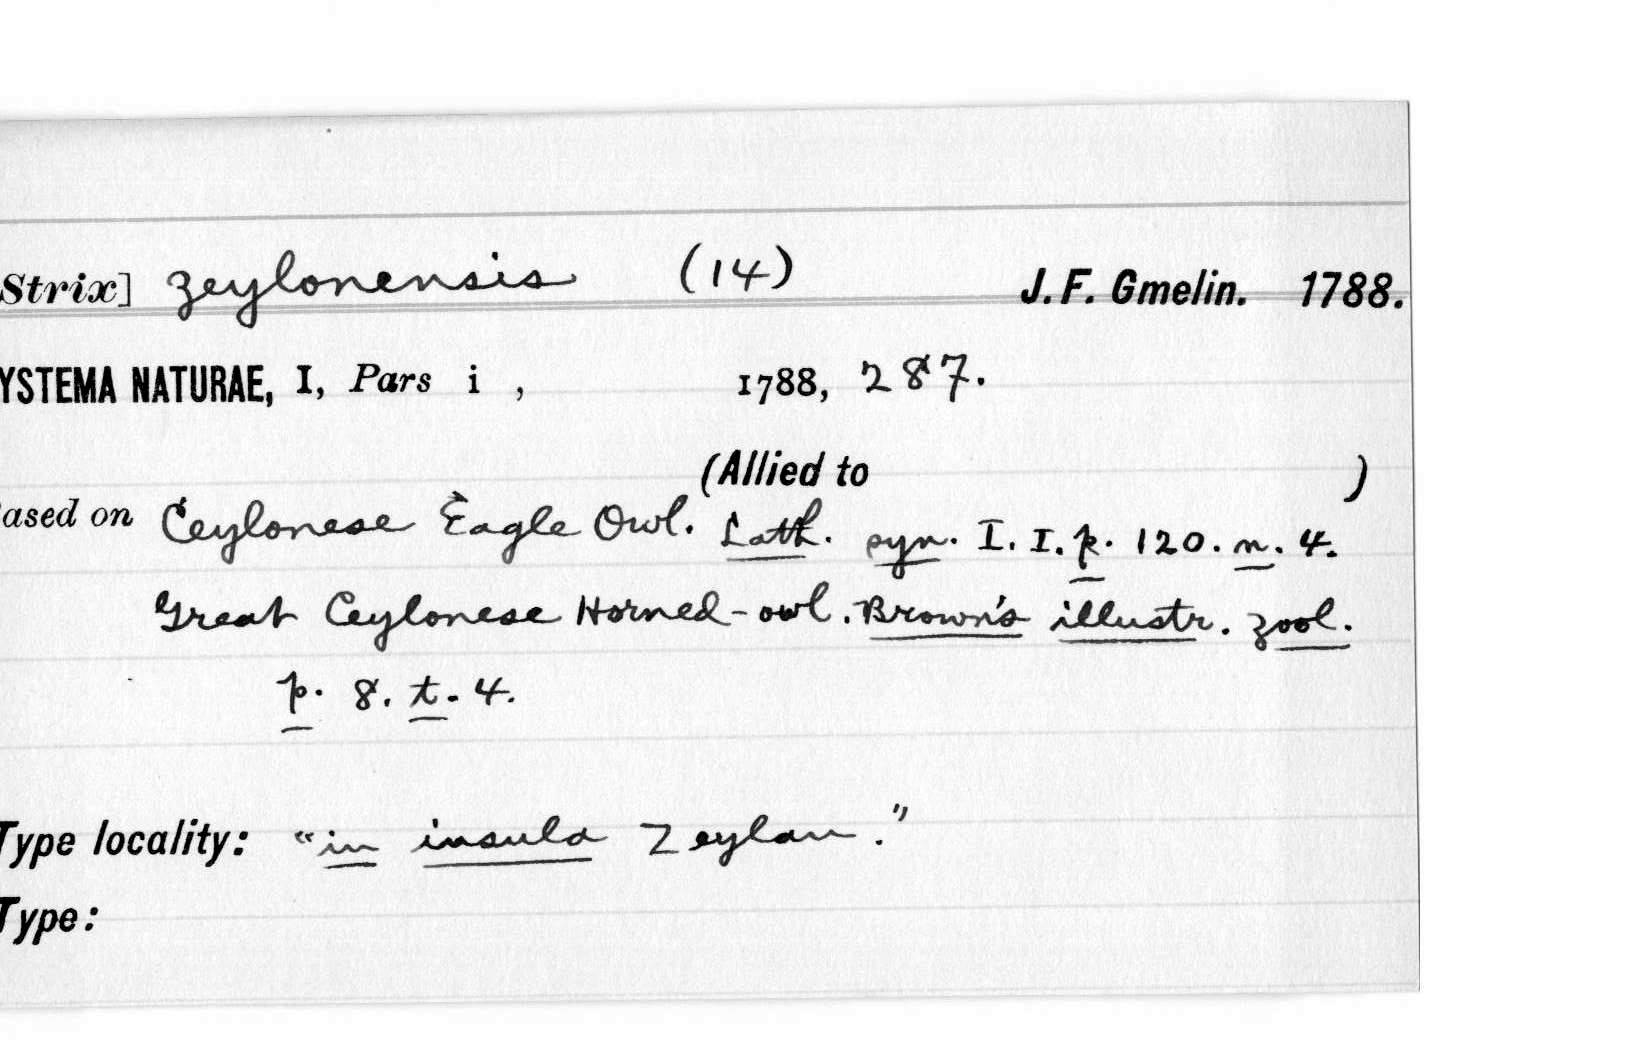 Strix] zeylonensis (14) J. F. Gmelin. 1788.
YSTEMA NATURAE, I, Pars i , 1788, 287.
(Allied to )
ased on Ceylonese Eagle Owl. Lath. syn. I. I. p. 120. n. 4.
Great Ceylonese Horned-owl. Brown's illustr. zool.
p. 8. t. 4.
Type locality: "in insula Zeylan."
Type: